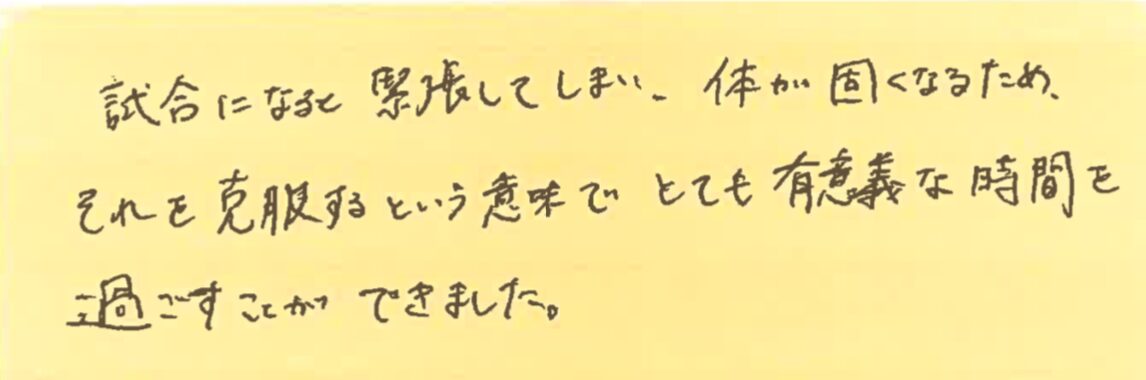 試合になると緊張してしまい、体が固くなるため、
それを克服するという意味でとても有意義な時間を
過ごすことができました。